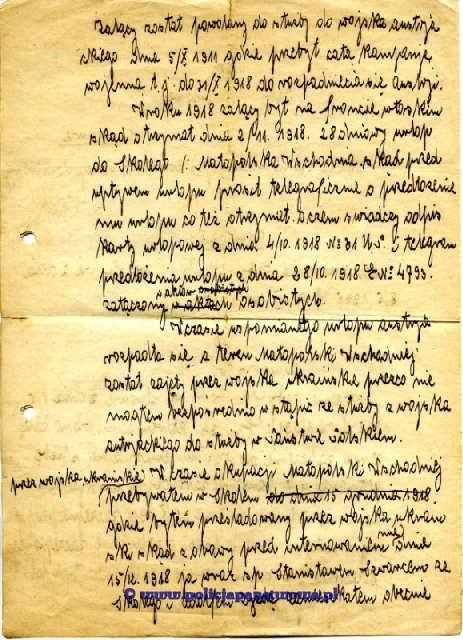 żalący został powołany do służby do wojska austrja
ckiego dnia 5/X 1911 gdzie przebył całą kampanję
wojenną t.j. do 31/X 1918 do rozpadnięcia się Austrji.
W roku 1918 żalący był na froncie włoskim
skąd otrzymał dnia 2/11. 1918. 28 dniowy urlop
do Skolego /. Małopolska Wschodnia. skąd przed
upływem urlopu prosił telegraficznie o przedłożenie
mu urlopu co też otrzymał. o czem świadczy odpis
karty urlopowej z dnia 4/10. 1918 No 31 i telegram
przedłożenia urlopu z dnia 28/10. 1918 No 4793.
załączony w aktach osobistych.
W czasie wspomnianego urlopu Austrja
rozpadła się a teren Małopolski Wschodniej
został zajęty przez wojska ukraińskie przeco nie
mogłem bezpośrednio wstąpić ze służby z wojska
austryjackiego do służby w Państwie Polskiem.
przez wojska ukraińskie W czasie okupacji Małopolski Wschodniej
przebywałem w Skolem do dnia 15 grudnia 1918
gdzie byłem prześladowany przez wojska ukraiń
sk skąd z obawy przed internowaniem mnie
15/12. 1918 ja wraz sp Stanisławem ze
Skolego i obecnie
© www.policjapanstwowa.pl